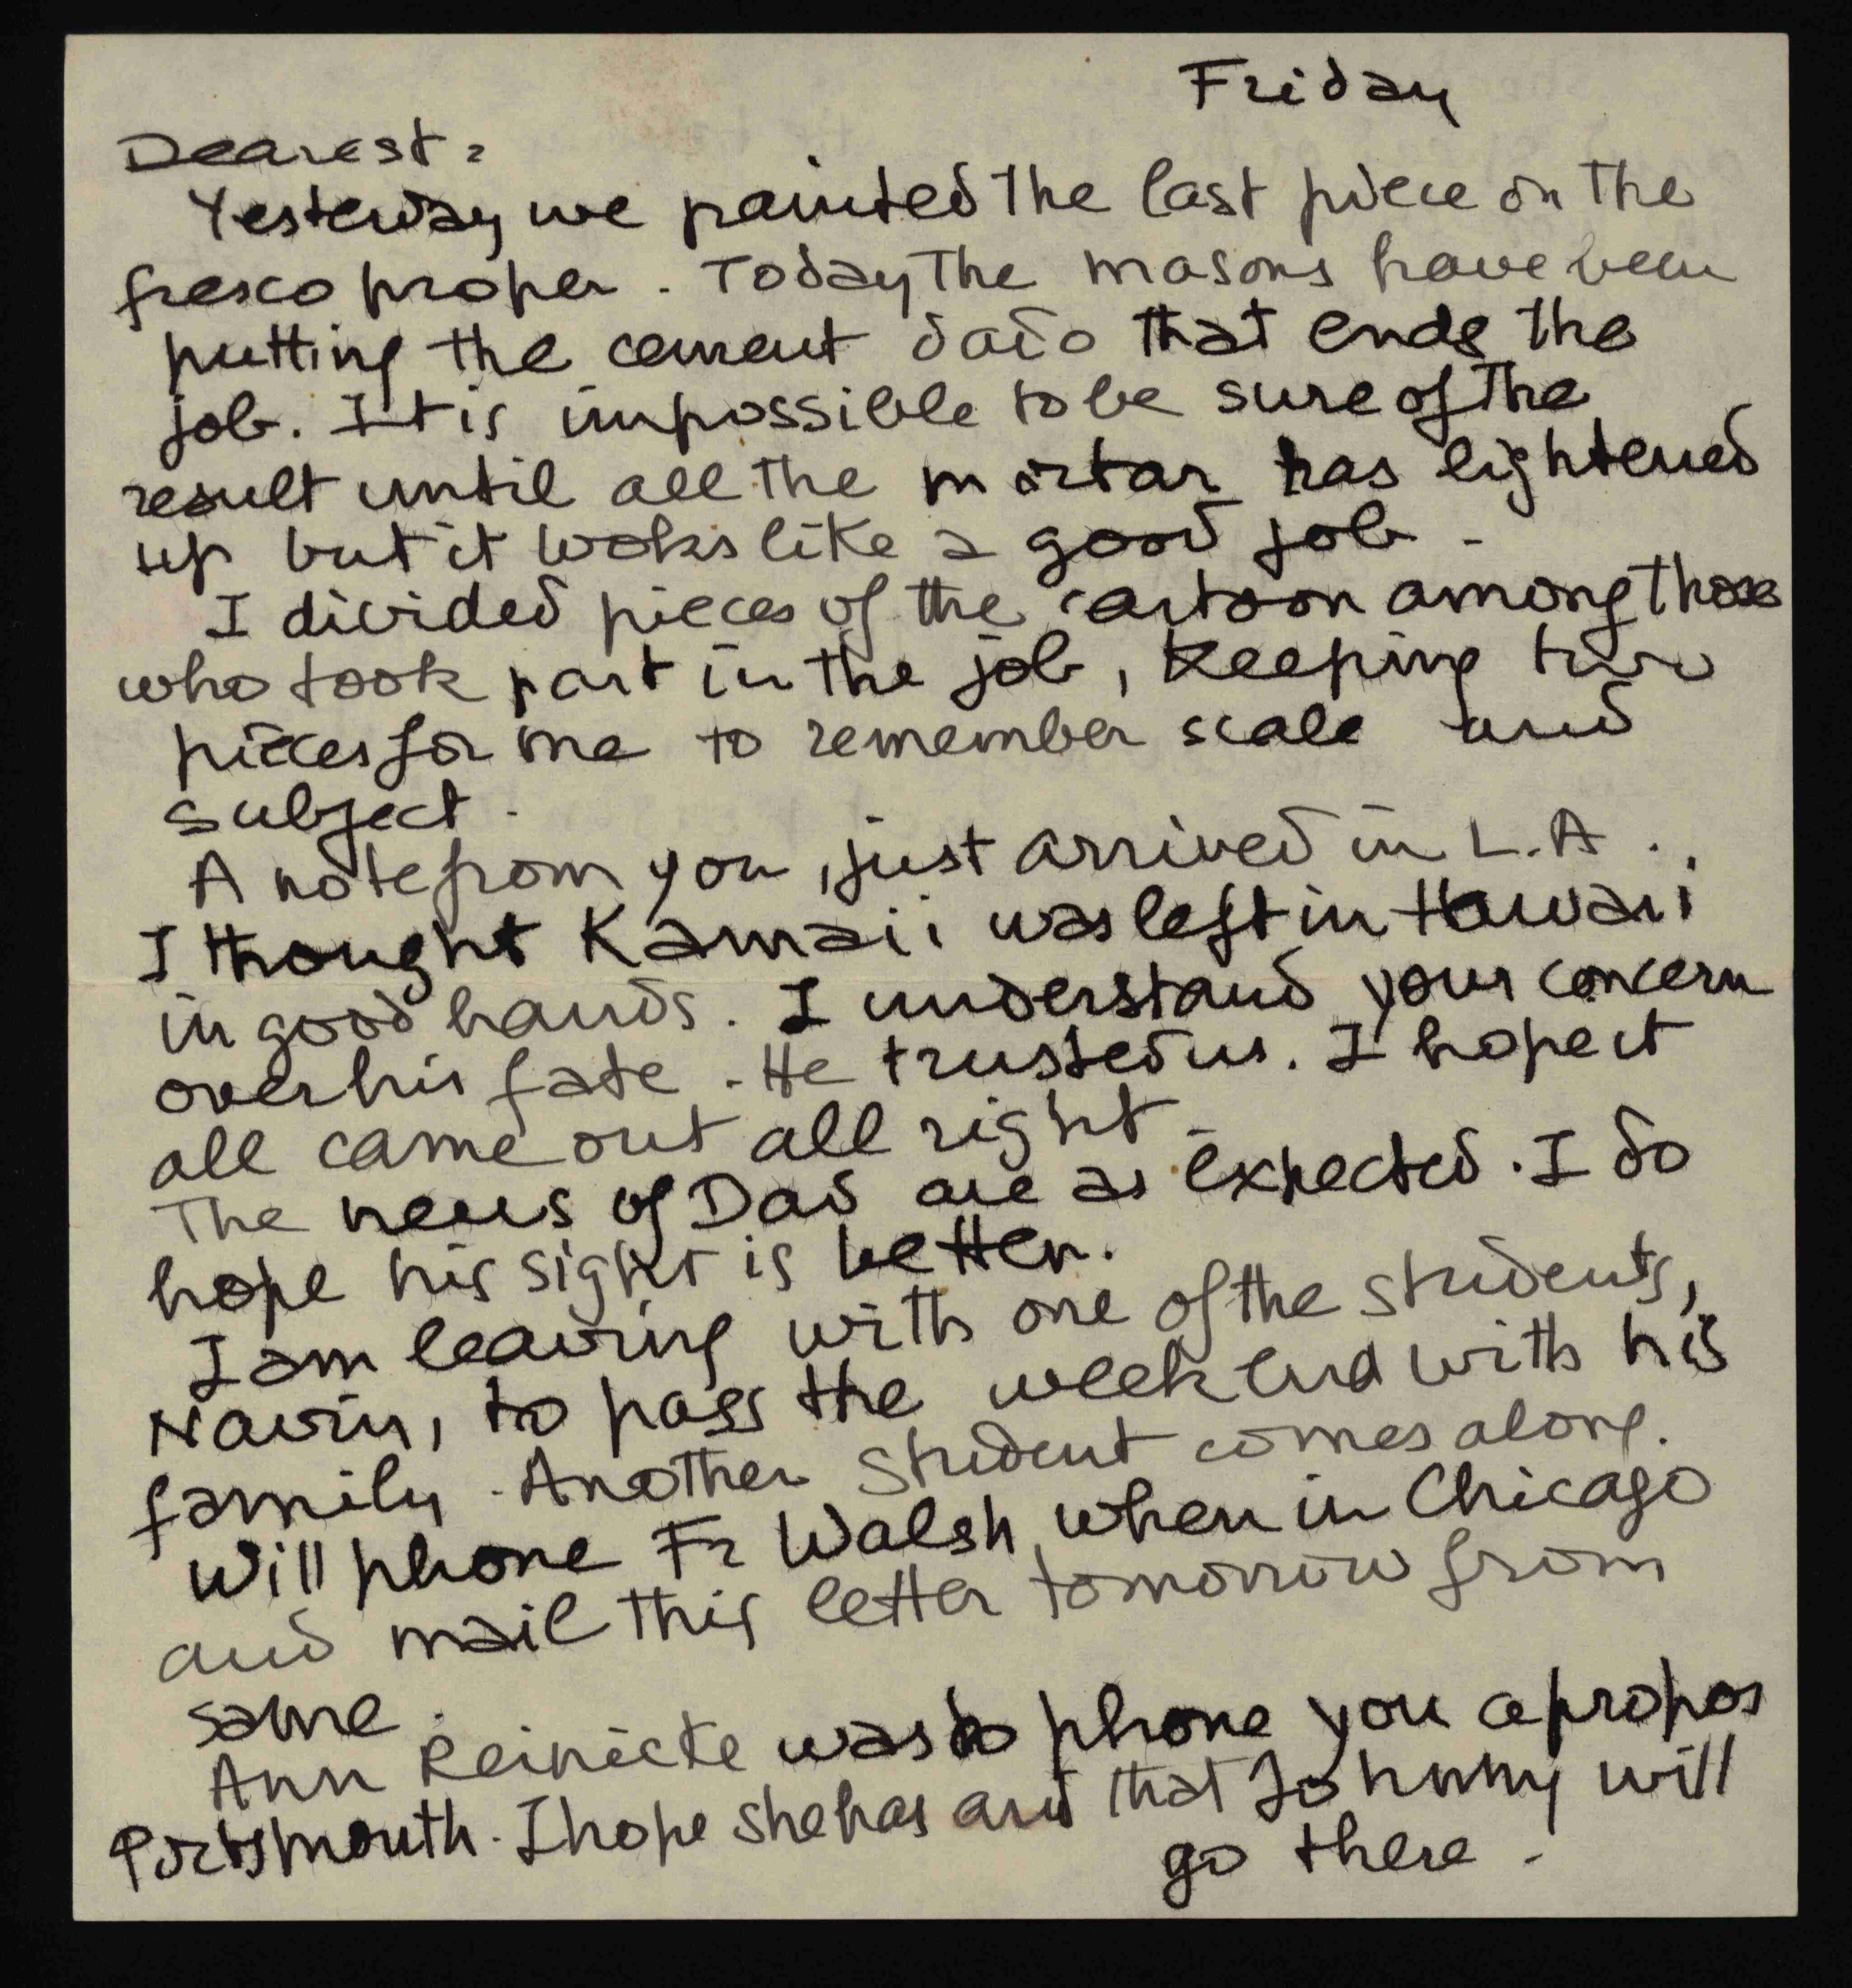 Friday
Dearest:
Yesterday we painted the last piece on the
fresco proper. Today the masons have been
putting the cement dado that ends the
job. It is impossible to be sure of the
result until all the mortar has lightened
up but it looks like a good job -
I divided pieces of the cartoon among those
who took part in the job, keeping two
pieces for me to remember scale and
subject.
A note from you, just arrived in L.A..
I thought Kamaii was left in Hawaii
in good hands. I understand your concern
over his fate. He trusted us. I hope it
all came out all right -
The news of Dad are as expected. I do
hope his sight is better.
I am leaving with one of the students,
Navin, to pass the week end with his
family. Another student comes along.
Will phone Fr Walsh when in Chicago
and mail this letter tomorrow from
same.
Ann Reinicke was to phone you apropos
Portsmouth. I hope she has and that Johnny will
go there -